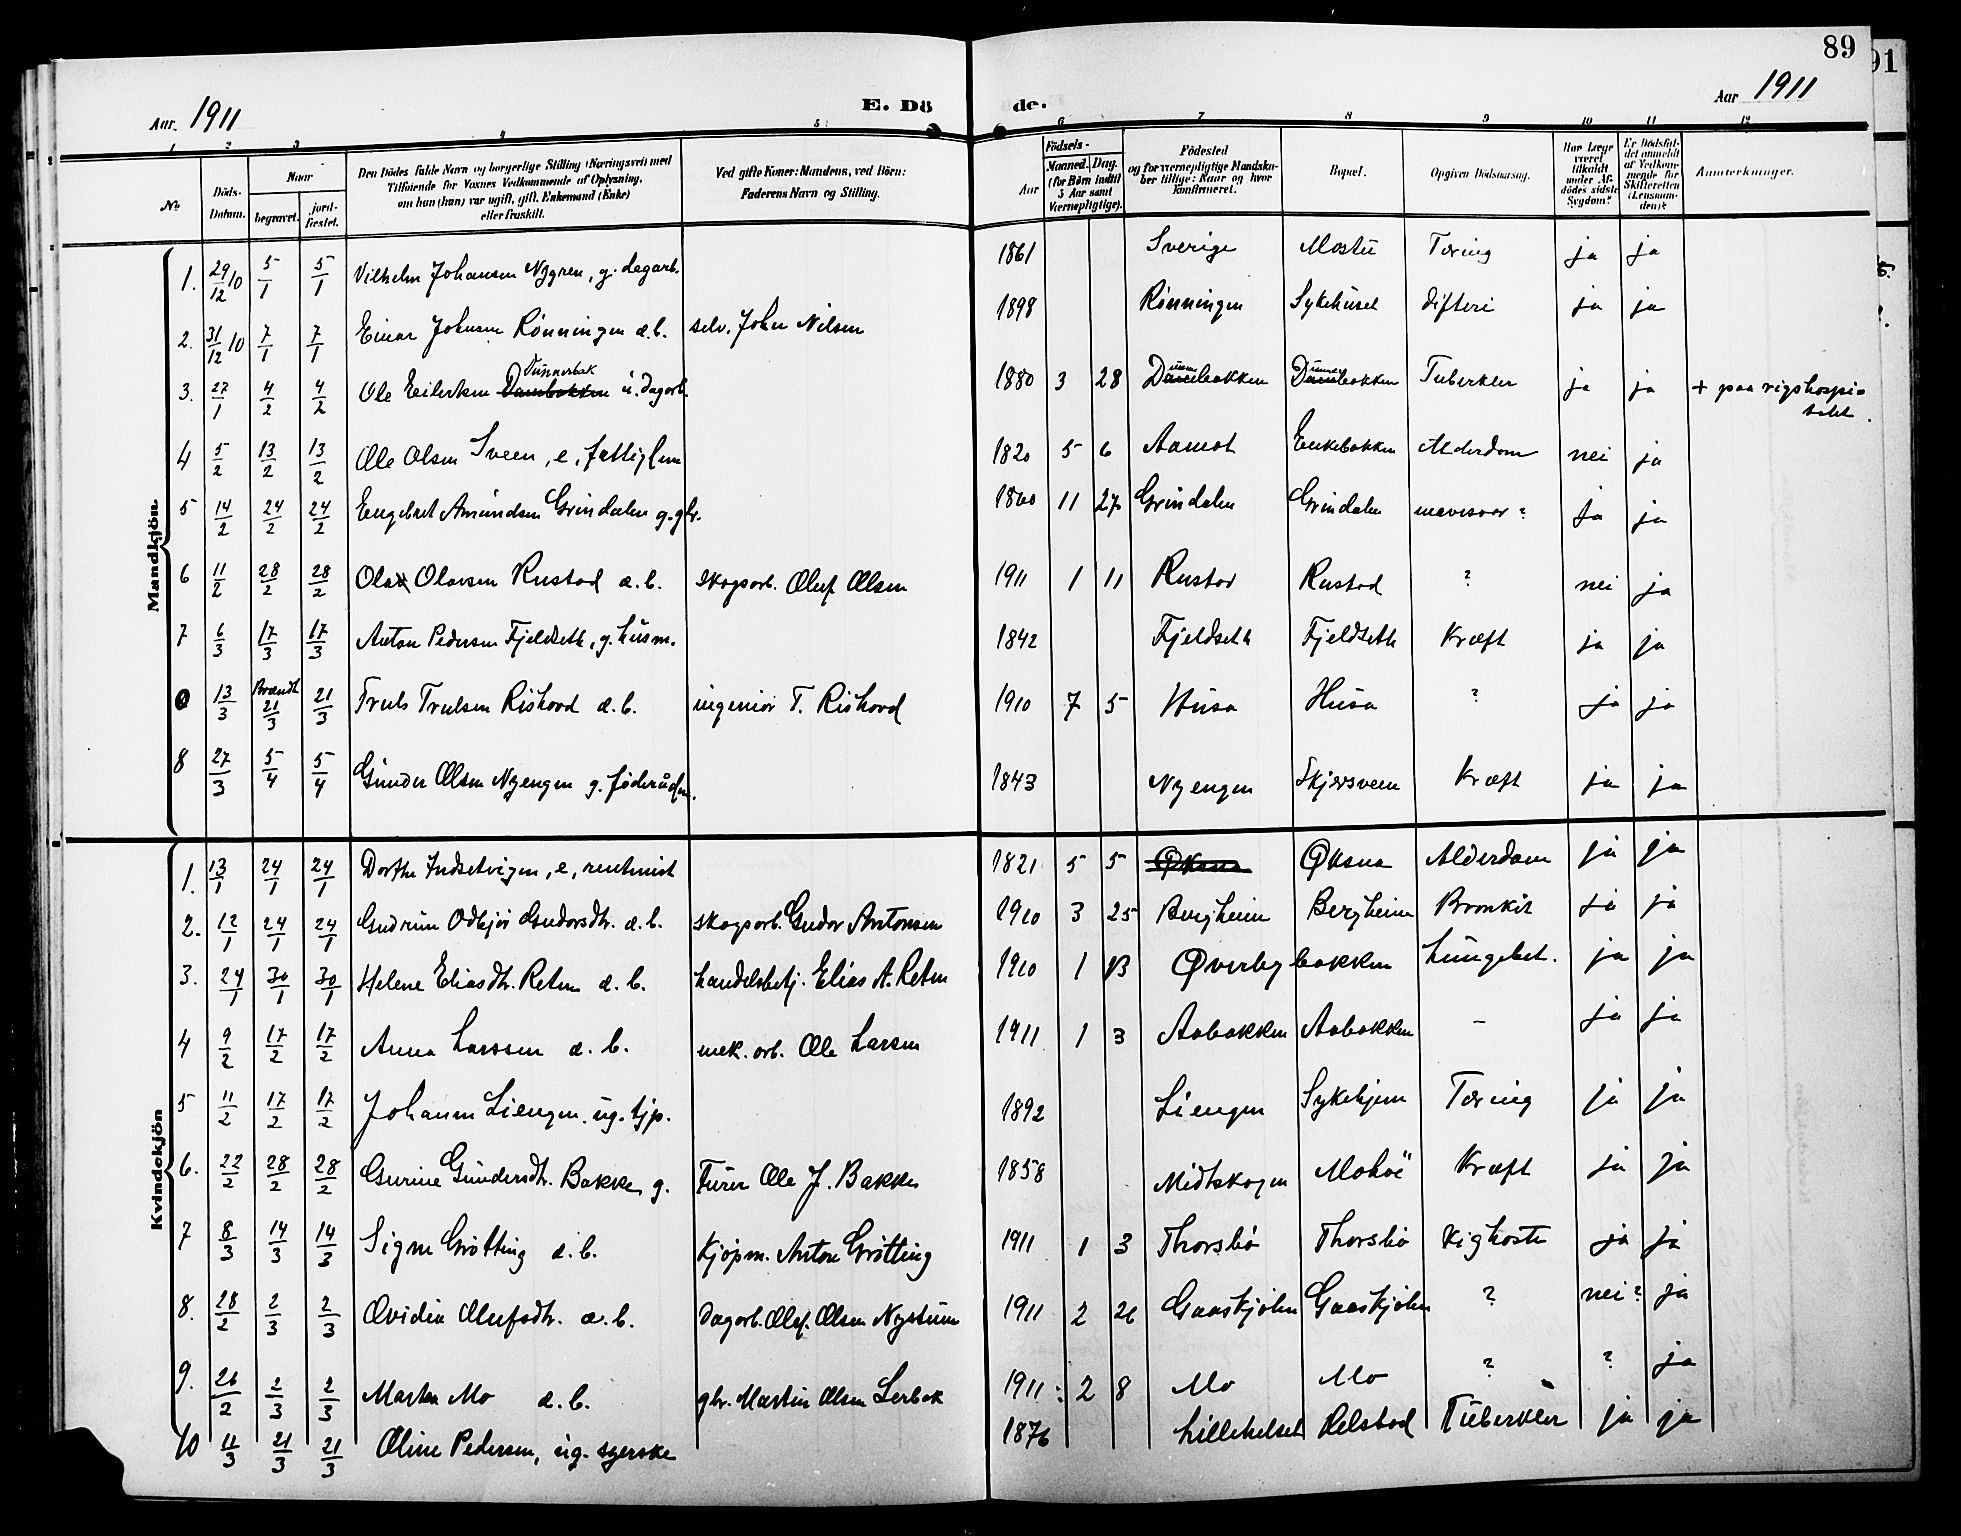 89
91
Aar 1911
E. Dö
de.
Aar 1911
1 2 3 4 5 6 7 8 9 10 11 12
No
Döds-Datum.
Naar
begravet.
jord-fæstet.
Den Dödes fulde Navn og borgerlige Stilling (Næringsvei) med
Tilföiende for Voxnes Vedkommende af Oplysning,
om hun (han) var ugift, gift, Enkemand (Enke)
eller fraskilt.
Ved gifte Koner: Mandens, ved Börn:
Faderens Navn og Stilling.
Födsels-
Aar
Maaned. Dag.
(for Børn indtil
5 Aar samt
Værnepligtige).
Födested
og for værnepligtige Mandska-
ber tillige: Naar og hvor
konfirmeret.
Bopæl.
Opgiven Dödsaarsag.
Har Læge
været
tilkaldt
under Af-
dödes sidste
Sygdom?
Er Dödsfal-
det anmeldt
af Vedkom-
mende for
Skifteretten
(Lensman-
den)?
Anmærkninger.
Mandkjön.
1. 29/12 10 5/1 5/1 Vilhelm Johansen Nygren, g. dagarb. 1861 Sverige Mostu Tæring ja ja
2. 31/12 10 7/1 7/1 Einar Johnsen Rønningen d.b. selv. John Nilsen 1898 Rønningen Sykehuset difteri ja ja
3. 27/1 4/2 4/2 Ole Eilertsen Dunnerbak u. dagarb. 1880 3 28 bakken bakken Tuberkler ja ja + paa rigshospi-
talet.
4 5/2 13/2 13/2 Ole Olsen Sveen, e, fattiglem 1820 5 6 Aamot Enkebakken Alderdom nei ja
5 14/2 24/2 24/2 Engebret Amundsen Grindalen g. gbr. 1860 11 27 Grindalen Grindalen mavesaar? ja ja
6 11/2 28/2 28/2 Olav Olavsen Rustad d.b. skogsarb. Oluf Olsen 1911 1 11 Rustad Rustad ? nei ja
7 6/3 17/3 17/3 Anton Pedersen Fjeldseth, g. husm. 1842 Fjeldseth Fjeldseth Kræft ja ja
0 13/3 Brændt 21/3 21/3 Truls Trulsen Riskovd d.b. ingeniør T. Riskovd 1910 7 5 Husa Husa ? ja ja
8 27/3 5/4 5/4 Gunder Olsen Nyengen g. føderaadm. 1843 Nyengen Skjærsveen Kræft ja ja
Kvindekjön
1. 13/1 24/1 24/1 Dorthe Indsetvigen, e, rentenist 1821 5 5 Øksna Øksna Alderdom ja ja
2. 12/1 24/1 24/1 Gudrun Odbjør Gudorsdtr. d.b. skogsarb. Gudor Antonsen 1910 3 25 Bergheim Bergheim Bronkit ja ja
3. 24/1 30/1 30/1 Helene Eliasdtr. Reten d.b. handelsbetj. Elias A. Reten 1910 1 13 Øverbybakken Lungebet. ja ja
4 9/2 17/2 17/2 Anna Larssen d.b. mek. arb. Ole Larsen 1911 1 3 Aabakken Aabakken – ja ja
5 11/2 17/2 17/2 Johanne Liengen ug. tjp. 1892 Liengen Sykehjem Tæring ja ja
6. 22/2 28/2 28/2 Gurine Gundersdtr. Bakken g. Furer Ole J. Bakken 1858 Midtskogen Mohøi Kræft ja ja
7 8/3 14/3 14/3 Signe Grøtting d.b. Kjøpm. Anton Grøtting 1911 1 3 Thorsbø Thorsbø Kighoste ja ja
8. 28/2 2/3 2/3 Ovidia Olufsdtr. d.b. Dagarb. Oluf. Olsen Nystuen 1911 2 26 Gaaskjølen Gaaskjølen ? nei? ja
9. 26/2 2/3 2/3 Martha Mo d.b. gbr. Martin Olsen Lerbak 1911: 2 8 Mo Mo ? ? ja
10 11/3 21/3 21/3 Oline Pedersen, ug. syerske 1876 Lillehelset Delstad Tuberkler ja ja